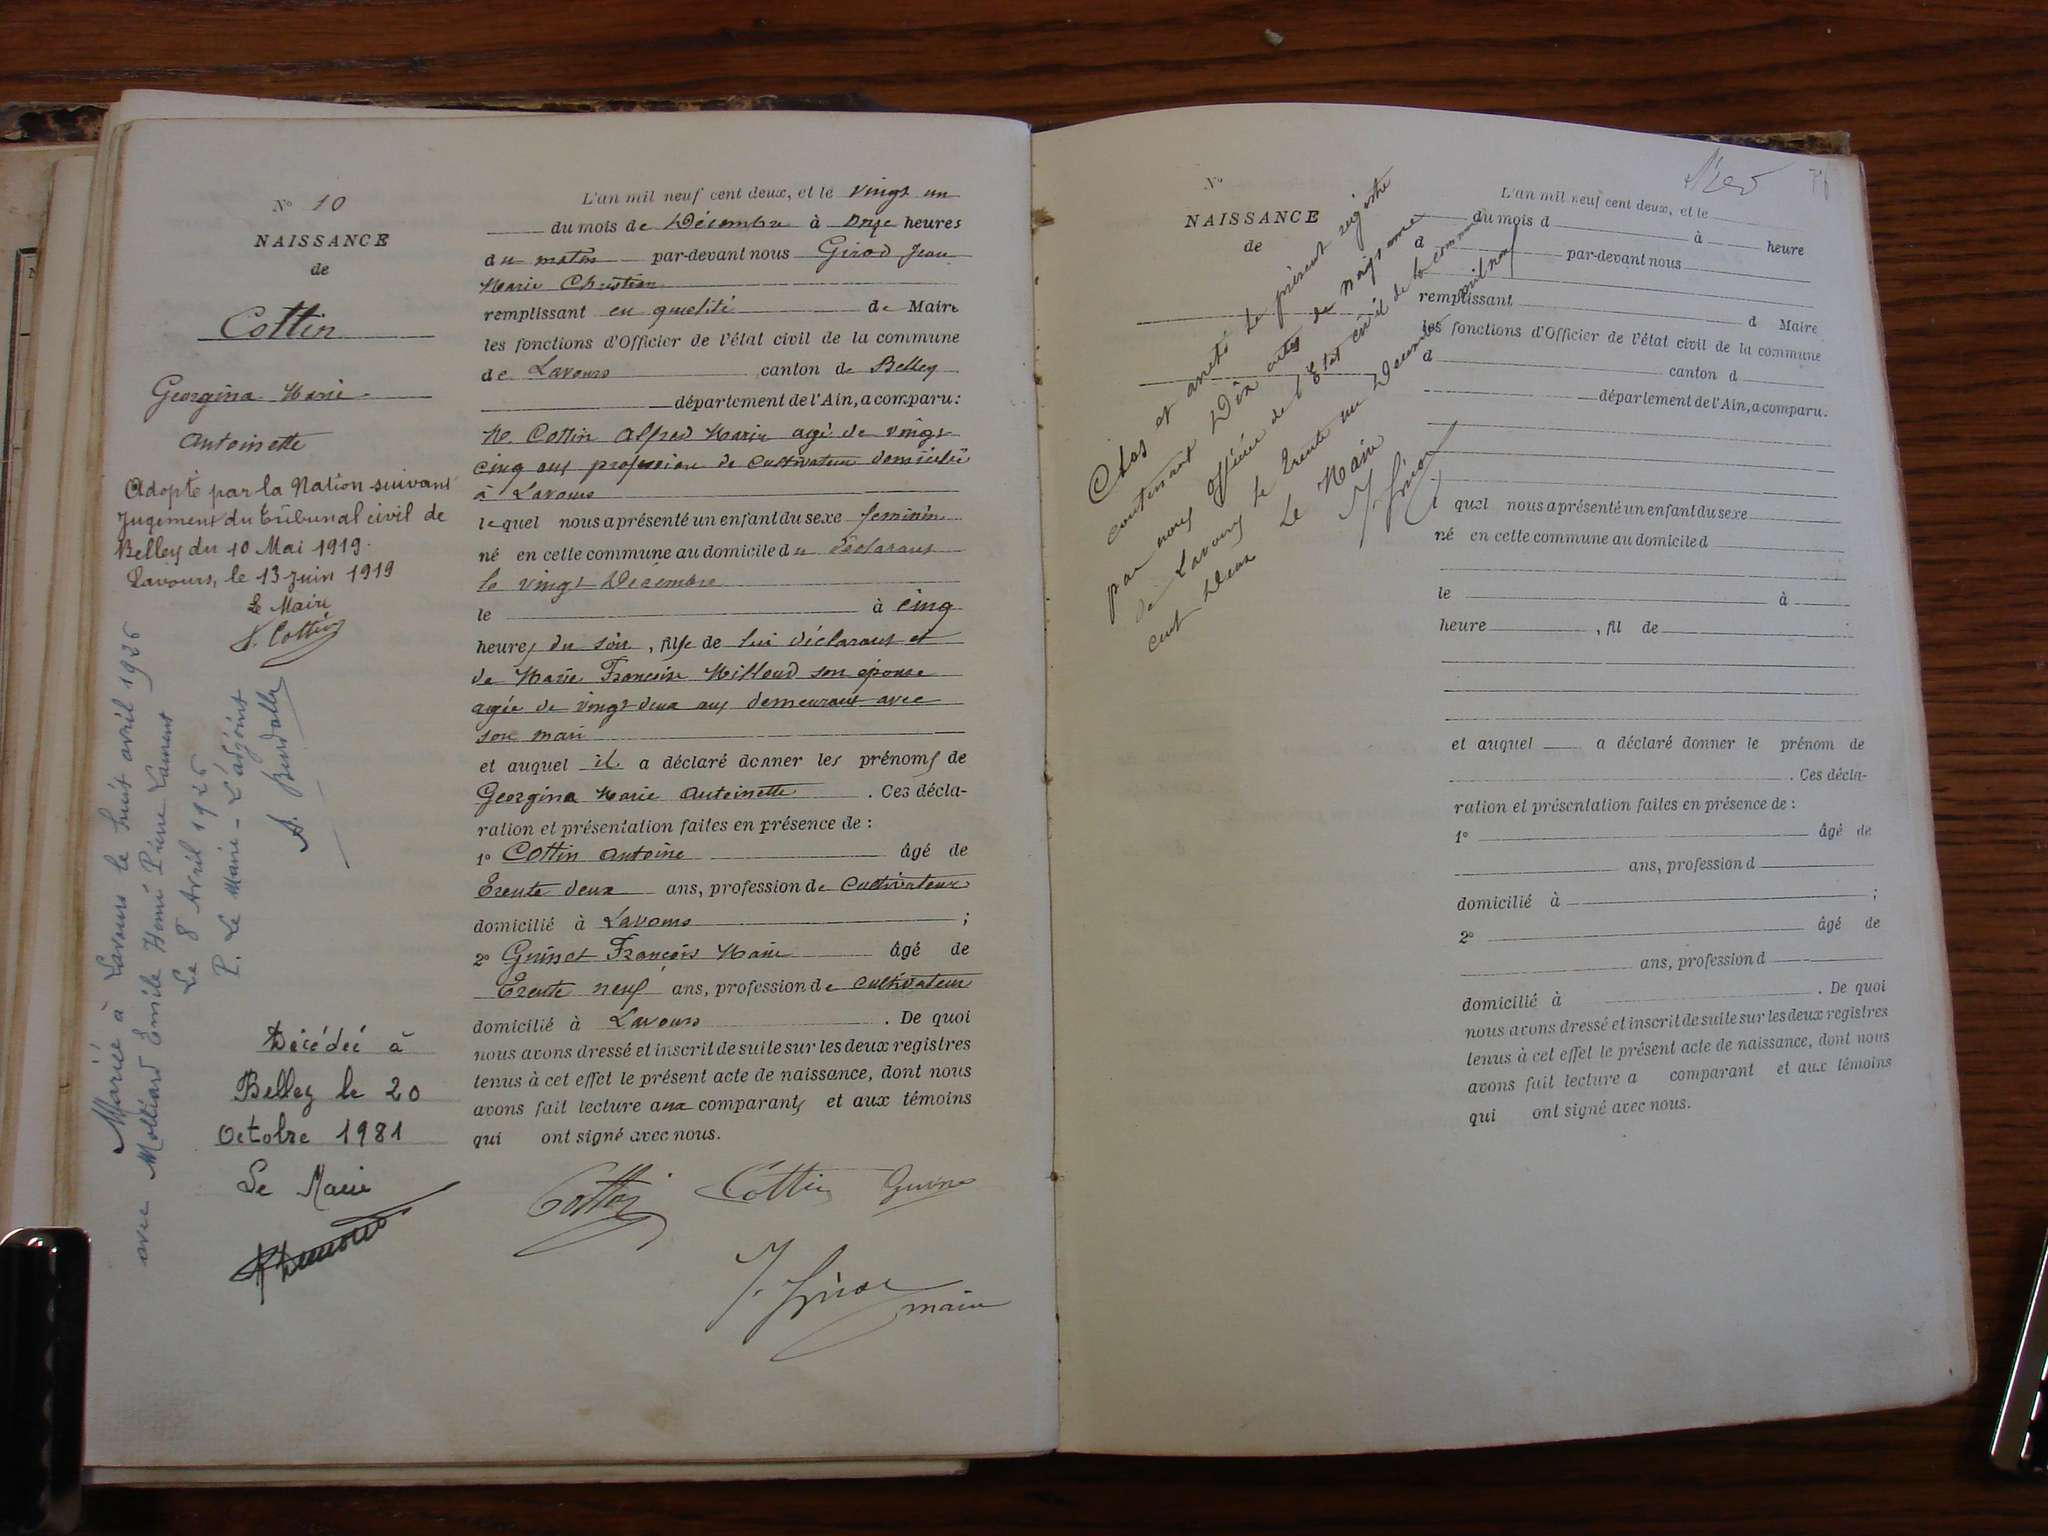 N° 10
NAISSANCE
de
Cottin
Georgina Marie
Antoinette
Adopté par la Nation suivant
Jugement du tribunal civil de
Belley du 10 Mai 1919.
Lavours, le 13 Juin 1919
Le Maire
Cottin
Mariée à Lavours le huit avril 1926
avec Molliard Emile Henri Pierre Laurent
Le 8 Avril 1926
P. Le Maire - L'adjoint
Décédée à
Belley le 20
Octobre 1981
Le Maire
L'an mil neuf cent deux, et le vingt un
du mois de Décembre à onze heures
du matin par-devant nous Girod Jean
Marie Christian
remplissant en qualité de Maire
les fonctions d'Officier de l'état civil de la commune
de Lavours canton de Belley
département de l'Ain, a comparu :
M. Cottin Alfred Marie agé de vingt
cinq ans profession de cultivateur domicilié
à Lavours
lequel nous a présenté un enfant du sexe féminin
né en cette commune au domicile du déclarant
le vingt Décembre
le à cinq
heures du soir, fille de lui déclarant et
de Marie Françoise Milloud son épouse
agée de vingt deux ans demeurant avec
son mari
et auquel il a déclaré donner les prénoms de
Georgina Marie Antoinette. Ces décla-
ration et présentation faites en présence de :
1° Cottin Antoine âgé de
Trente deux ans, profession de cultivateur
domicilié à Lavours ;
2° Guinet François Marie âgé de
Trente neuf ans, profession de cultivateur
domicilié à Lavours. De quoi
nous avons dressé et inscrit de suite sur les deux registres
tenus à cet effet le présent acte de naissance, dont nous
avons fait lecture aux comparants et aux témoins
qui ont signé avec nous.
Cottin Cottin Guinet
J. Girod
maire
N°
NAISSANCE
de
Clos et arrêté le présent registre
contenant Dix actes de naissance
par nous officier de l'Etat civil de la commune
de Lavours le trente un Décembre mil neuf
cent deux
Le Maire
J. Girod
L'an mil neuf cent deux, et le
du mois d à heure
d par-devant nous
remplissant d Maire
les fonctions d'Officier de l'état civil de la commune
d canton d
département de l'Ain, a comparu :
l quel nous a présenté un enfant du sexe
né en cette commune au domicile d
le à
heure , fil de
et auquel a déclaré donner le prénom de
. Ces décla-
ration et présentation faites en présence de :
1° âgé de
ans, profession d
domicilié à ;
2° âgé de
ans, profession d
domicilié à . De quoi
nous avons dressé et inscrit de suite sur les deux registres
tenus à cet effet le présent acte de naissance, dont nous
avons fait lecture a comparant et aux témoins
qui ont signé avec nous.